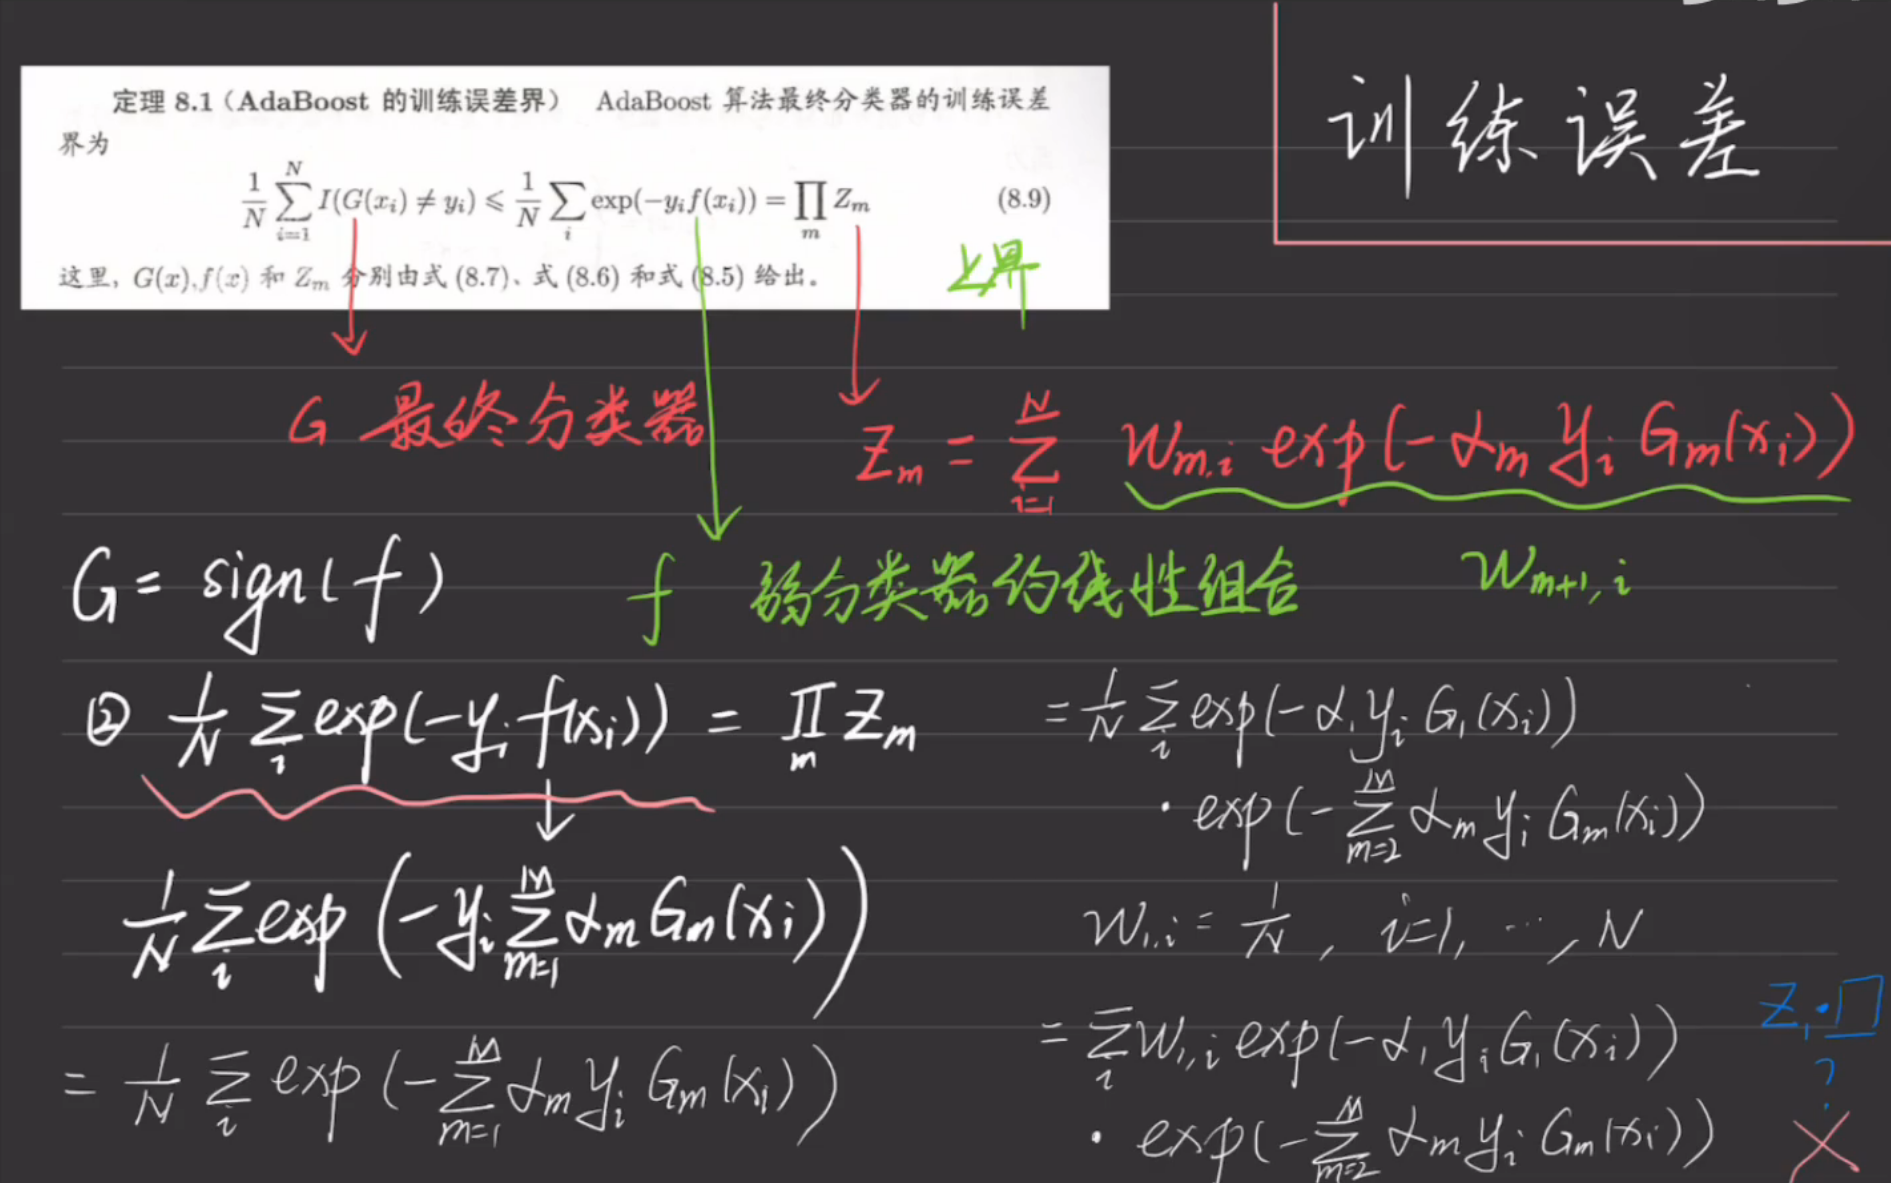 训练误差
定理 8.1（AdaBoost 的训练误差界） AdaBoost 算法最终分类器的训练误差
界为
\frac{1}{N} \sum_{i=1}^{N} I(G(x_i) ≠ y_i) ⩽ \frac{1}{N} \sum_i exp(-y_i f(x_i)) = \prod_m Z_m (8.9)
这里, G(x), f(x) 和 Z_m 分别由式 (8.7)、式 (8.6) 和式 (8.5) 给出。
上界
G 最终分类器
Z_m = \sum_{i=1}^{N} w_{m,i} exp(-α_m y_i G_m(x_i))
G = sign(f)
f 弱分类器的线性组合
w_{m+1,i}
② \frac{1}{N} \sum_i exp(-y_i f(x_i)) = \prod_m Z_m
\frac{1}{N} \sum_i exp(-y_i \sum_{m=1}^{M} α_m G_m(x_i))
= \frac{1}{N} \sum_i exp(-\sum_{m=1}^{M} α_m y_i G_m(x_i))
= \frac{1}{N} \sum_i exp(-α_1 y_i G_1(x_i))
· exp(-\sum_{m=2}^{M} α_m y_i G_m(x_i))
w_{1,i} = \frac{1}{N}, i=1, ⋯, N
= \sum_i w_{1,i} exp(-α_1 y_i G_1(x_i))
· exp(-\sum_{m=2}^{M} α_m y_i G_m(x_i))
Z_1 · □
?
×